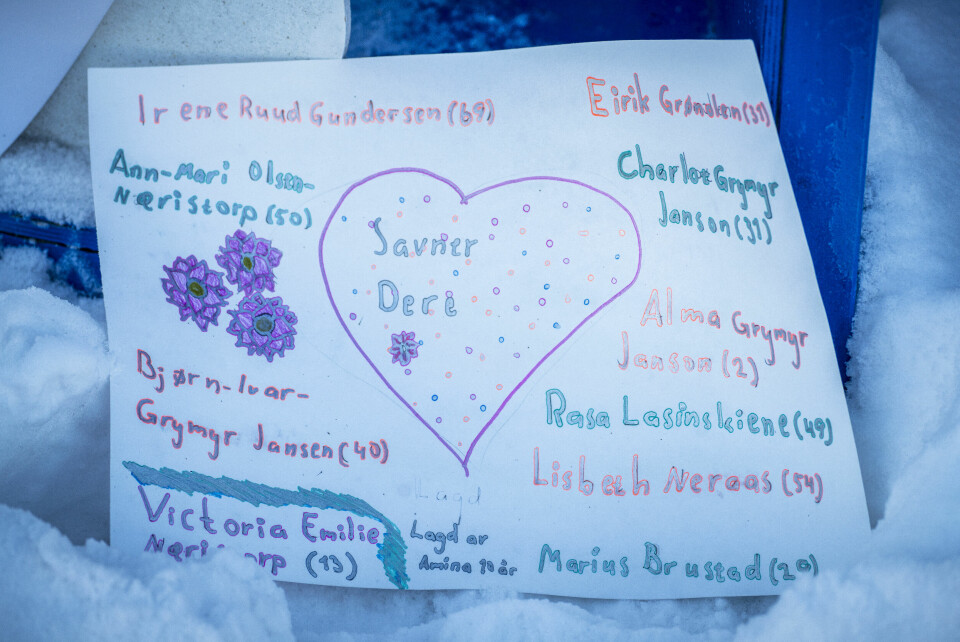 Irene Ruud Gundersen (69)
Ann-Mari Olsen-
Næristorp (50)
Bjørn-Ivar-
Grymyr Jansen (40)
Victoria Emilie
Næristorp (13)
Savner
Dere
Lagd
Lagd av
Amina 10 år
Eirik Grønolen (31)
Charlot Grymyr
Janson (31)
Alma Grymyr
Janson (2)
Rasa Lasinskiene (49)
Lisbeth Neraas (54)
Marius Brustad (29)